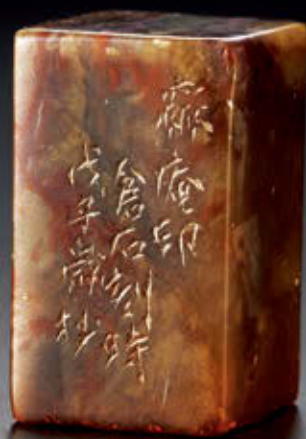 蘇盦印
倉石刻時
戊子歲杪